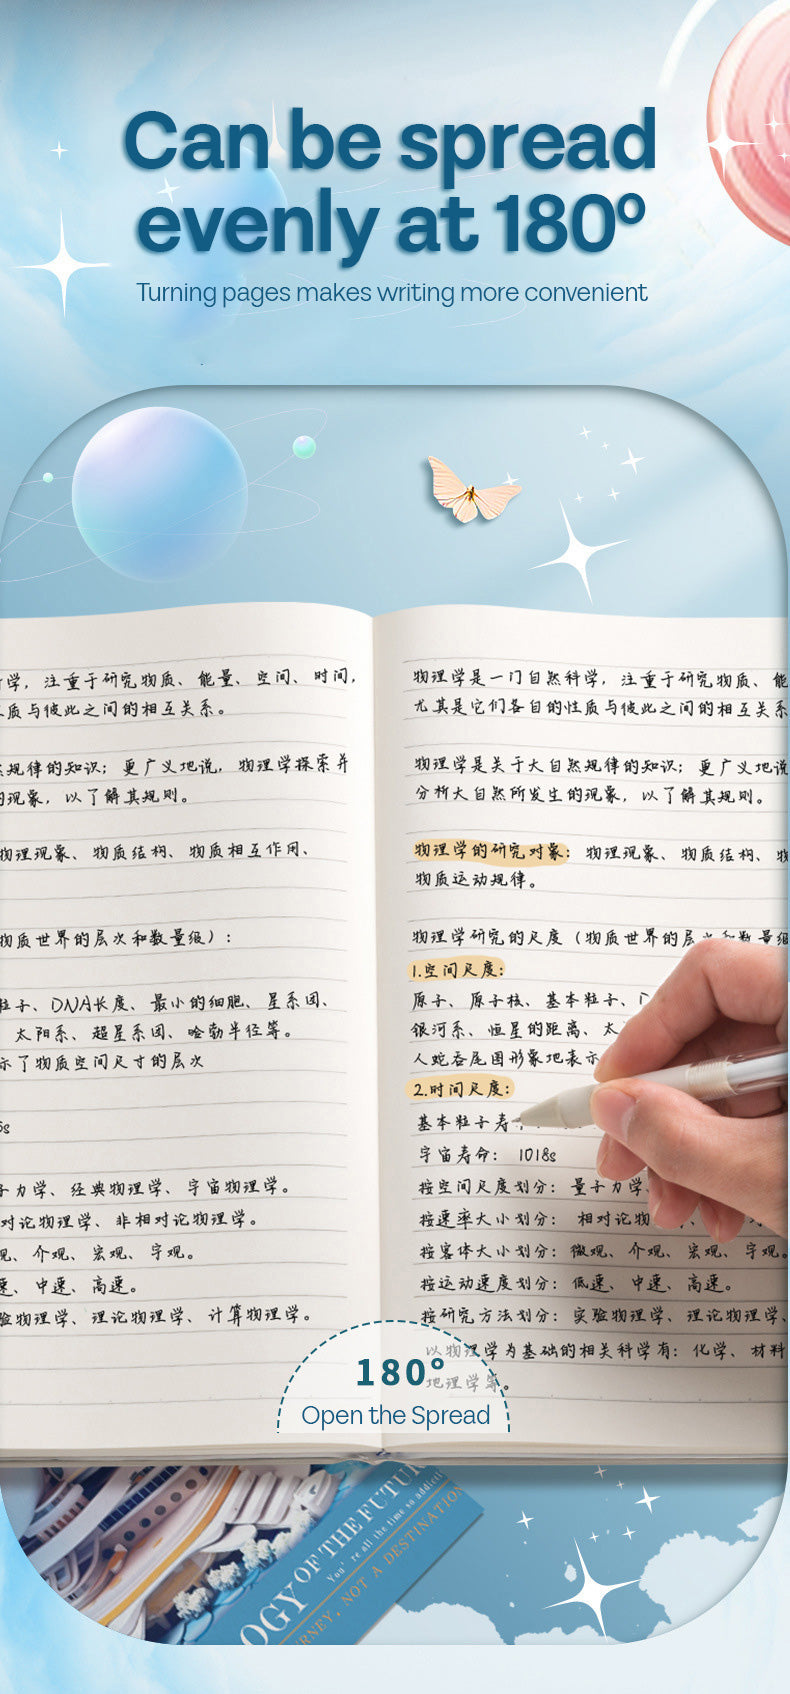 Can be spread
evenly at 180°
Turning pages makes writing more convenient
学，注重于研究物质、能量、空间、时间，
质与彼此之间的相互关系。
规律的知识；更广义地说，物理学探索并
现象，以了解其规则。
物理现象、物质结构、物质相互作用、
物质世界的层次和数量级）：
粒子、DNA长度、最小的细胞、星系团、
太阳系、超星系团、哈勃半径等。
示了物质空间尺寸的层次
s
子力学、经典物理学、宇宙物理学。
对论物理学、非相对论物理学。
观、介观、宏观、宇观。
速、中速、高速。
验物理学、理论物理学、计算物理学。
物理学是一门自然科学，注重于研究物质、能
尤其是它们各自的性质与彼此之间的相互关系
物理学是关于大自然规律的知识；更广义地说
分析大自然所发生的现象，以了解其规则。
物理学的研究对象：物理现象、物质结构、物
物质运动规律。
物理学研究的尺度（物质世界的层次和数量级
1.空间尺度：
原子、原子核、基本粒子、
银河系、恒星的距离、太
人蛇吞尾图形象地表示
2.时间尺度：
基本粒子寿
宇宙寿命：1018s
按空间尺度划分：量子力学、
按速率大小划分：相对论物
按客体大小划分：微观、介观、宏观、宇观。
按运动速度划分：低速、中速、高速。
按研究方法划分：实验物理学、理论物理学、
以物理学为基础的相关科学有：化学、材料
地理学等。
180°
Open the Spread
OGY OF THE FUTUR
You're all the time so addict
RNEY, NOT A DESTINATION